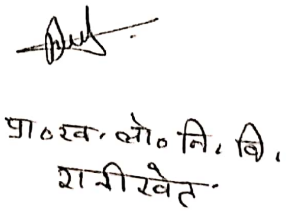 प्रा०ख. लो० नि. वि.
रानीखेत.